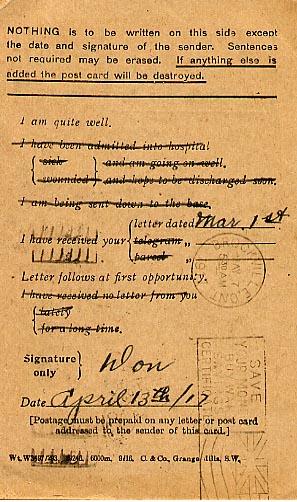 NOTHING is to be written on this side except
the date and signature of the sender. Sentences
not required may be erased. If anything else is
added the post card will be destroyed.
I am quite well.
I have been admitted into hospital
sick
and am going on well.
wounded
and hope to be discharged soon.
I am being sent down to the base.
letter dated Mar. 1st
I have received your telegram ,,
parcel ,,
Letter follows at first opportunity.
I have received no letter from you
lately
for a long time.
Signature only
Don
Date April 13th/17
[Postage must be prepaid on any letter or post card
addressed to the sender of this card.]
6000m. 9/16. C. & Co., Grange Mills, S.W.
SAVE